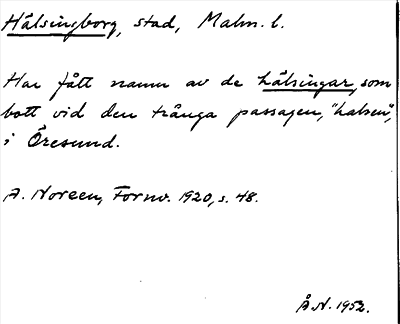 Hälsingborg, stad, Malm. l.
Har fått namn av de hälsingar, som
bott vid den trånga passagen, "halsen",
i Öresund.
A. Noreen, Fornv. 1920, s. 48.
Å.N. 1952.